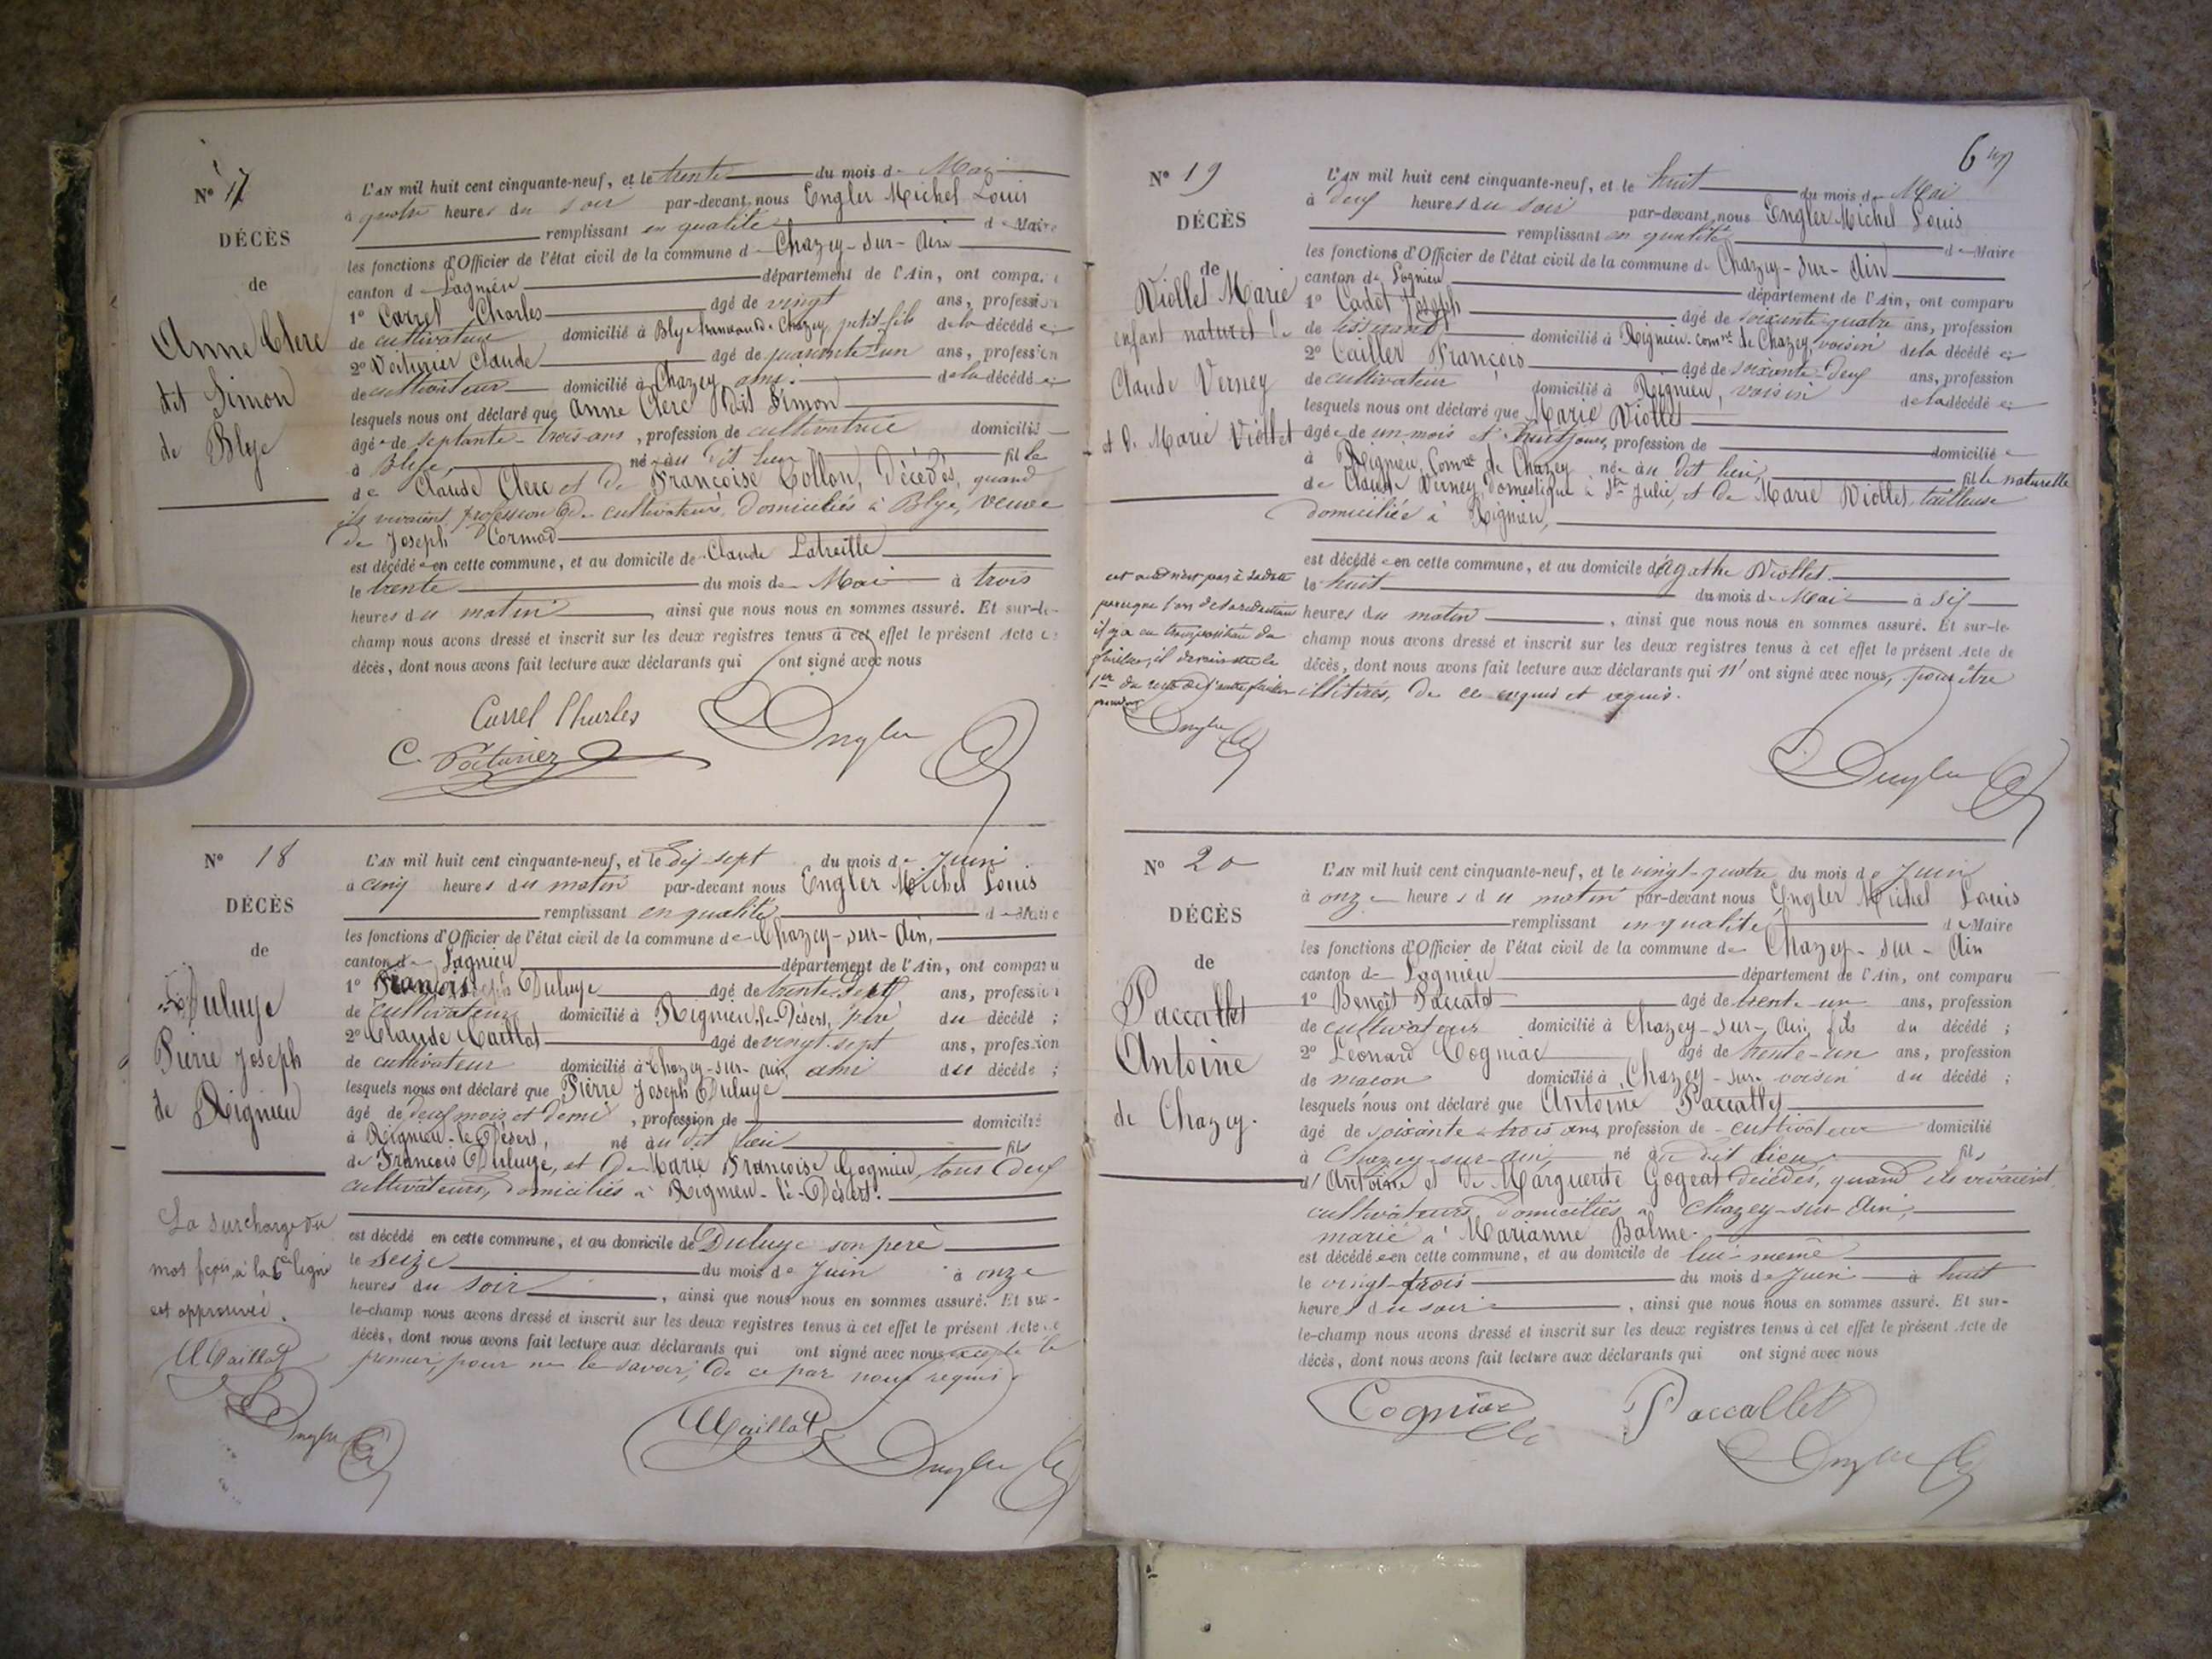 N° 17
DÉCÈS
de
Anne Clerc
dit Simon
de Blye
L'AN mil huit cent cinquante-neuf, et le trente du mois de Mai
à quatre heures du soir par-devant nous Engler Michel Louis
remplissant en qualité de Maire
les fonctions d'Officier de l'état civil de la commune de Chazey-sur-Ain
canton de Lagnieu département de l'Ain, ont compa
1° Carrel Charles âgé de vingt ans, profession
de cultivateur domicilié à Blye Chazey petit-fils de la décédée
2° Voiturier Claude âgé de quarante-un ans, profession
de cultivateur domicilié à Chazey, ami. de la décédée
lesquels nous ont déclaré que Anne Clerc dit Simon
âgée de septante-trois ans, profession de cultivatrice domicilié
à Blye, née au dit lieu fille
de Claude Clerc et de Françoise Collon, décédés, quand
ils vivaient, profession de cultivateurs domiciliés à Blye, veuve
de Joseph Cormod
est décédée en cette commune, et au domicile de Claude Latreille
le trente du mois de Mai à trois
heures du matin ainsi que nous nous en sommes assuré. Et sur-le-
champ nous avons dressé et inscrit sur les deux registres tenus à cet effet le présent Acte de
décès, dont nous avons fait lecture aux déclarants qui ont signé avec nous
Carrel Charles
Engler
C. Voiturier
N° 18
DÉCÈS
de
Duluye
Pierre Joseph
de Rignieu
L'AN mil huit cent cinquante-neuf, et le dix-sept du mois de Juin
à cinq heures du matin par-devant nous Engler Michel Louis
remplissant en qualité de Maire
les fonctions d'Officier de l'état civil de la commune de Chazey-sur-Ain,
canton de Lagnieu département de l'Ain, ont comparu
1° François Duluye âgé de trente-sept ans, profession
de cultivateur domicilié à Rignieu-le-Désert, père du décédé ;
2° Claude Maillat âgé de vingt-sept ans, profession
de cultivateur domicilié à Chazey-sur-ain, ami du décédé ;
lesquels nous ont déclaré que Pierre Joseph Duluye
âgé de deux mois et demi, profession de domicilié
à Rignieu-le-Désert, né au dit lieu fils
de François Duluye, et de Marie Françoise Gognieu, tous deux
cultivateurs, domiciliés à Rignieu-le-Désert.
est décédé en cette commune, et au domicile de Duluye son père
le seize du mois de Juin à onze
heures du soir, ainsi que nous nous en sommes assuré. Et sur-
le-champ nous avons dressé et inscrit sur les deux registres tenus à cet effet le présent Acte de
décès, dont nous avons fait lecture aux déclarants qui ont signé avec nous excepté le
premier, pour ne le savoir, de ce par nous requis.
La surcharge du
mot à la 6e ligne
est approuvée.
Maillat
Engler
Maillat
Engler
6
N° 19
DÉCÈS
de
Viollet Marie
enfant naturel de
Claude Verney
et de Marie Viollet
L'AN mil huit cent cinquante-neuf, et le huit du mois de Mai
à deux heures du soir par-devant nous Engler Michel Louis
remplissant en qualité de Maire
les fonctions d'Officier de l'état civil de la commune de Chazey-sur-Ain
canton de Lagnieu département de l'Ain, ont comparu
1° Cadet Joseph âgé de soixante-quatre ans, profession
de tisserand domicilié à Rignieu comne de Chazey, voisin de la décédée
2° Cailler François âgé de soixante-deux ans, profession
de cultivateur domicilié à Rignieu, voisin de la décédée
lesquels nous ont déclaré que Marie Viollet
âgée de un mois et huit jours, profession de domiciliée
à Rignieu, Comne de Chazey née au dit lieu, fille naturelle
de Claude Verney, domestique à Ste Julie, et de Marie Viollet, tailleuse
domiciliée à Rignieu,
est décédée en cette commune, et au domicile d'Agathe Viollet.
le huit du mois de Mai à six
heures du matin, ainsi que nous nous en sommes assuré. Et sur-le-
champ nous avons dressé et inscrit sur les deux registres tenus à cet effet le présent Acte de
décès, dont nous avons fait lecture aux déclarants qui n'ont signé avec nous, pour être
illitérés, de ce enquis et requis.
cet acte n'est pas à sa date
parceque lors de la rédaction
il y a eu transposition de
feuillets, il devait être le
1er du
Engler
Engler
N° 20
DÉCÈS
de
Paccallet
Antoine
de Chazey.
L'AN mil huit cent cinquante-neuf, et le vingt-quatre du mois de Juin
à onze heures du matin par-devant nous Engler Michel Louis
remplissant en qualité de Maire
les fonctions d'Officier de l'état civil de la commune de Chazey-sur-Ain
canton de Lagnieu département de l'Ain, ont comparu
1° Benoît Paccalet âgé de trente-un ans, profession
de cultivateur domicilié à Chazey-sur-Ain, fils du décédé ;
2° Léonard Cogniac âgé de trente-un ans, profession
de macon domicilié à Chazey-sur- voisin du décédé ;
lesquels nous ont déclaré que Antoine Paccallet
âgé de soixante-trois ans, profession de cultivateur domicilié
à Chazey-sur-ain né au dit lieu fils
d'Antoine et de Marguerite Gogeat décédés, quand ils vivaient,
cultivateurs, domiciliés à Chazey-sur-Ain,
marié à Marianne Balme.
est décédé en cette commune, et au domicile de lui-même
le vingt-trois du mois de Juin à huit
heures du soir, ainsi que nous nous en sommes assuré. Et sur-
le-champ nous avons dressé et inscrit sur les deux registres tenus à cet effet le présent Acte de
décès, dont nous avons fait lecture aux déclarants qui ont signé avec nous
Cogniac Paccallet
Engler